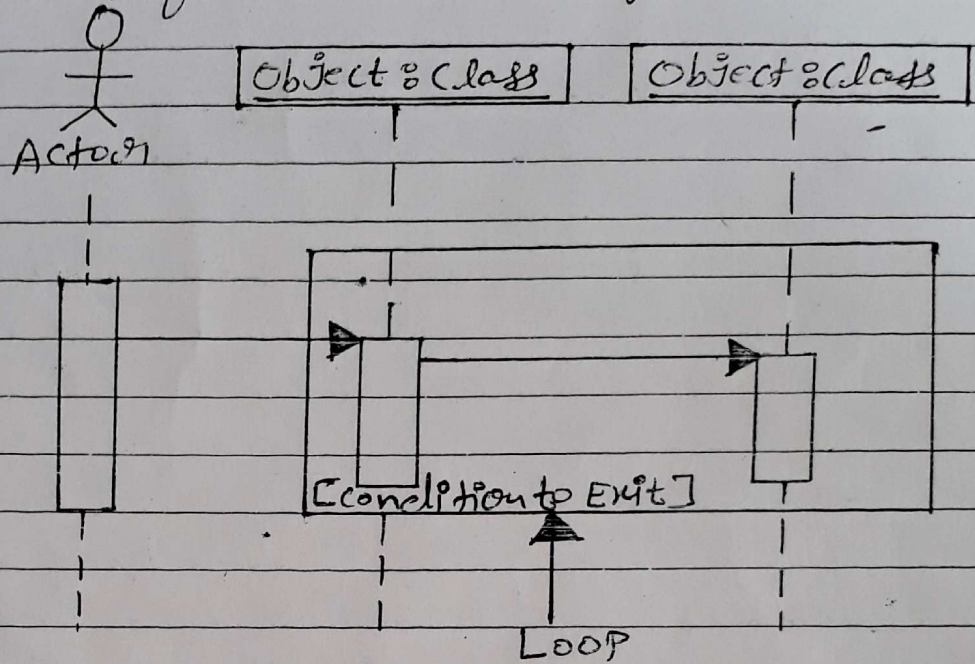 Object : Class
Object : Class
Actor
[Condition to Exit]
LOOP